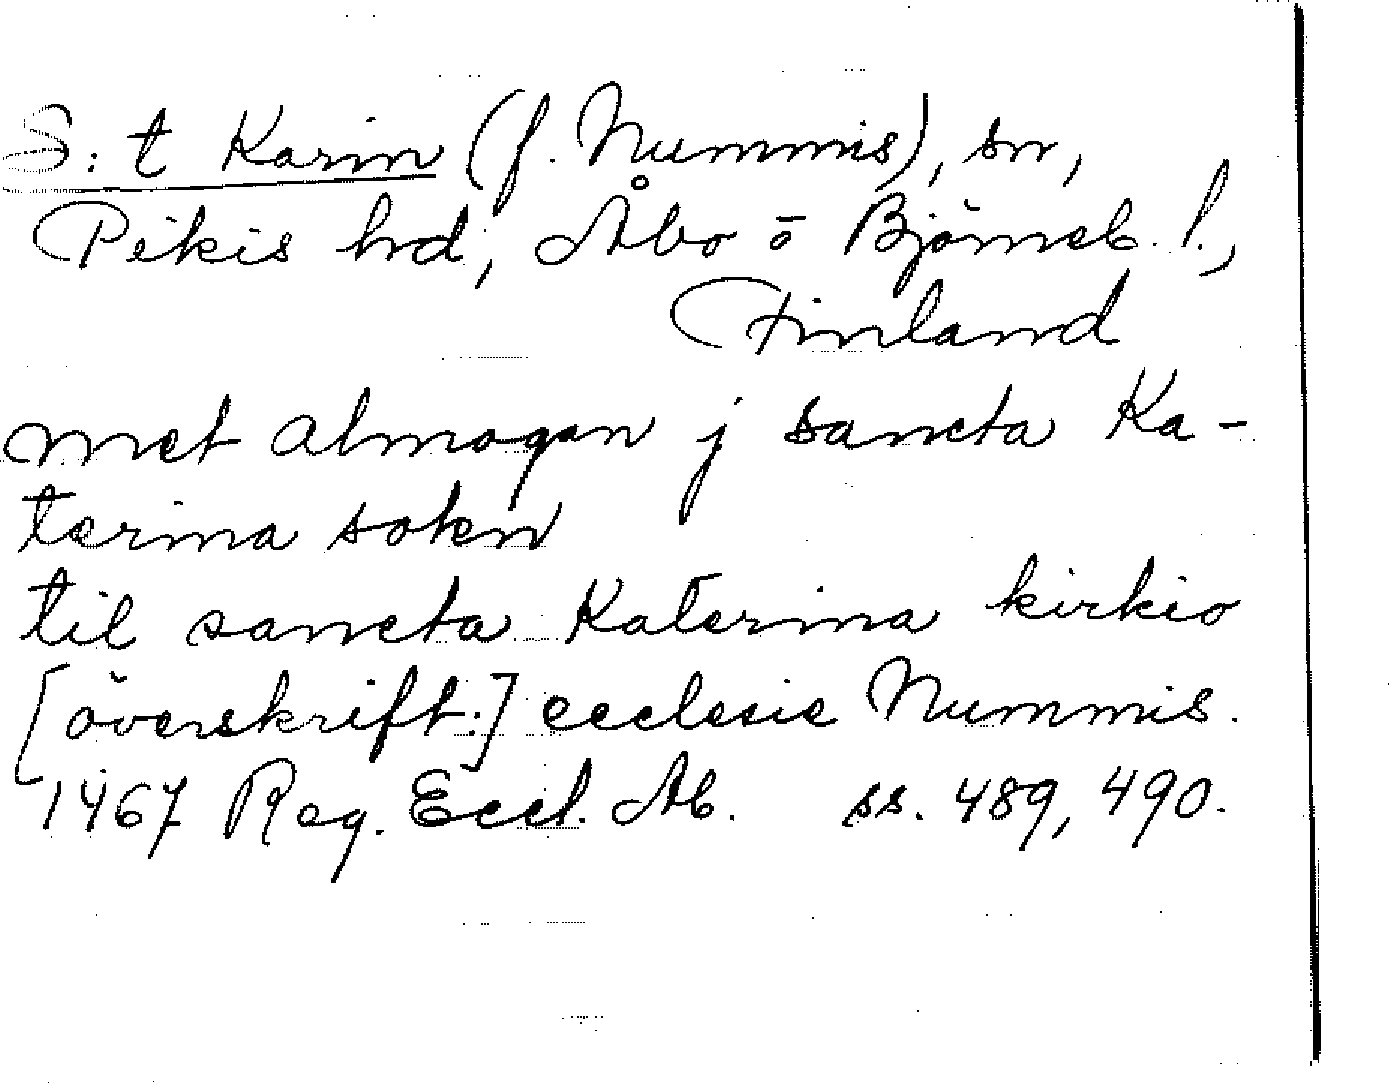 S:t Karin (f. Nummis), sn,
Pikis hd, Åbo ō Björneb. l.,
Finland
met almogan j sancta Ka-
terina sokn
til sancta Katerina kirkio
[överskrift:] ecclesie Nummis.
1467 Reg. Eccl. Ab. ss. 489, 490.